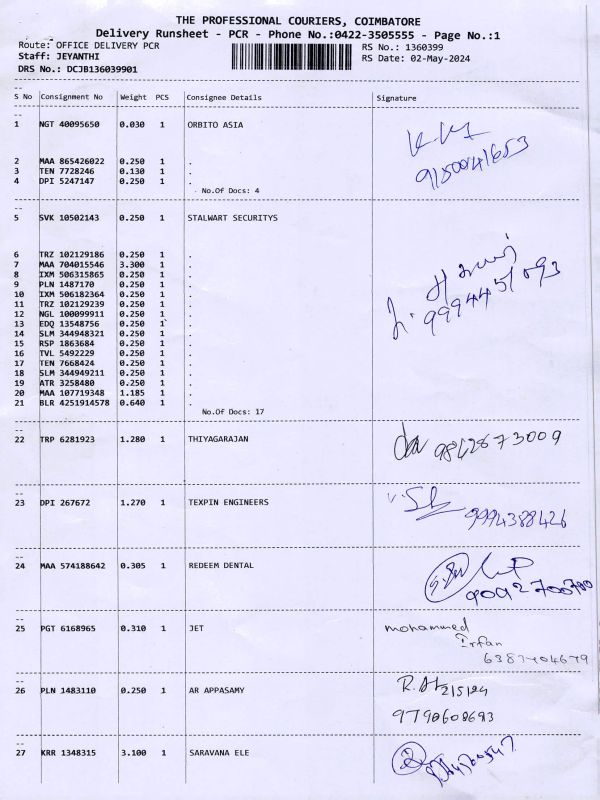 THE PROFESSIONAL COURIERS, COIMBATORE
Delivery Runsheet - PCR - Phone No.:0422-3505555 - Page No.:1
Route: OFFICE DELIVERY PCR RS No.: 1360399
Staff: JEYANTHI RS Date: 02-May-2024
DRS No.: DCJB136039901
S No Consignment No Weight PCS Consignee Details Signature
1 NGT 40095650 0.030 1 ORBITO ASIA
9150041653
2 MAA 865426022 0.250 1 .
3 TEN 7728246 0.130 1 .
4 DPI 5247147 0.250 1 .
No.Of Docs: 4
5 SVK 10502143 0.250 1 STALWART SECURITYS
6 TRZ 102129186 0.250 1 .
7 MAA 704015546 3.300 1 .
8 IXM 506315865 0.250 1 .
9 PLN 1487170 0.250 1 .
10 IXM 506182364 0.250 1 .
11 TRZ 102129239 0.250 1 .
12 NGL 100099911 0.250 1 .
13 EDQ 13548756 0.250 1 .
14 SLM 344948321 0.250 1 .
15 RSP 1863684 0.250 1 .
16 TVL 5492229 0.250 1 .
17 TEN 7668424 0.250 1 .
18 SLM 344949211 0.250 1 .
19 ATR 3258480 0.250 1 .
20 MAA 107719348 1.185 1 .
21 BLR 4251914578 0.640 1 .
No.Of Docs: 17
22 TRP 6281923 1.280 1 THIYAGARAJAN
9842673009
23 DPI 267672 1.270 1 TEXPIN ENGINEERS
9994388426
24 MAA 574188642 0.305 1 REDEEM DENTAL
25 PGT 6168965 0.310 1 JET
mohammed
Irfan
26 PLN 1483110 0.250 1 AR APPASAMY
2/5/24
9790608693
27 KRR 1348315 3.100 1 SARAVANA ELE